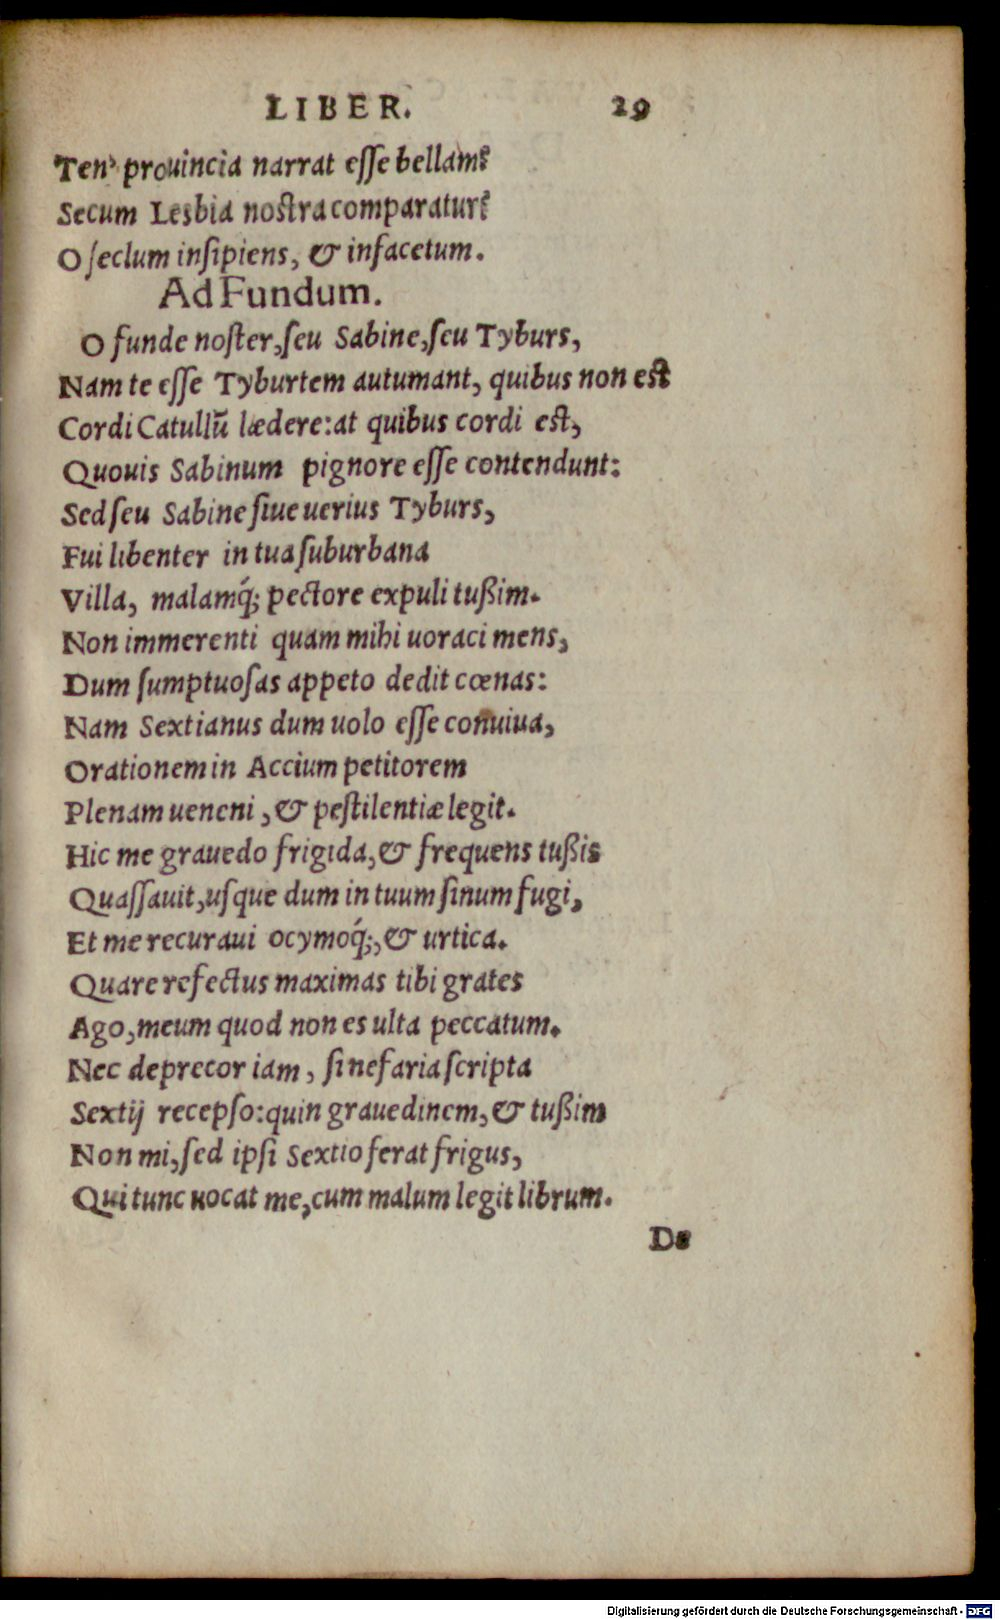 LIBER. 29
Ten' prouincia narrat eſſe bellam?
Secum Lesbia noſtra comparatur?
O ſeclum inſipiens, & infacetum.
Ad Fundum.
O funde noſter, ſeu Sabine, ſeu Tyburs,
Nam te eſſe Tyburtem autumant, quibus non eſt
Cordi Catullū lædere: at quibus cordi eſt,
Quouis Sabinum pignore eſſe contendunt:
Sed ſeu Sabine ſiue uerius Tyburs,
Fui libenter in tua ſuburbana
Villa, malamq́; pectore expuli tußim.
Non immerenti quam mihi uoraci mens,
Dum ſumptuoſas appeto dedit cœnas:
Nam Sextianus dum uolo eſſe conuiua,
Orationem in Accium petitorem
Plenam ueneni, & peſtilentiæ legit.
Hic me grauedo frigida, & frequens tußis
Quaſſauit, uſque dum in tuum ſinum fugi,
Et me recuraui ocymoq́;, & urtica.
Quare refectus maximas tibi grates
Ago, meum quod non es ulta peccatum.
Nec deprecor iam, ſi nefaria ſcripta
Sextij recepſo: quin grauedinem, & tußim
Non mi, ſed ipſi Sextio ferat frigus,
Qui tunc uocat me, cum malum legit librum.
De
Digitalisierung gefördert durch die Deutsche Forschungsgemeinschaft - DFG